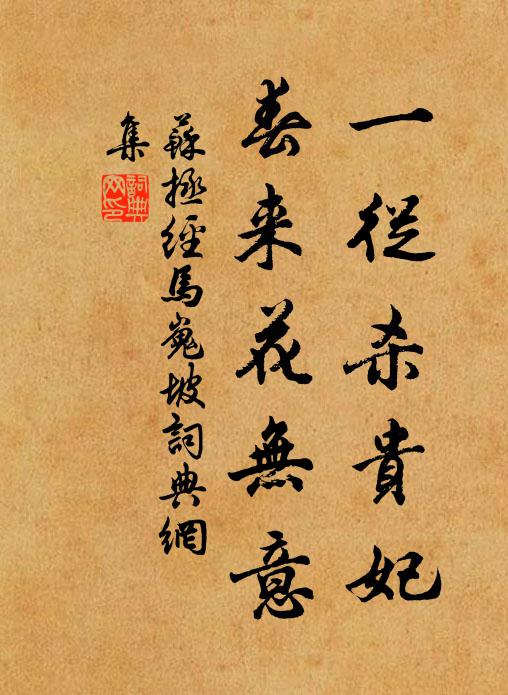 一從杀貴妃
春来花無意
蘇拯經馬嵬坡詞典網
集
詞典
网印